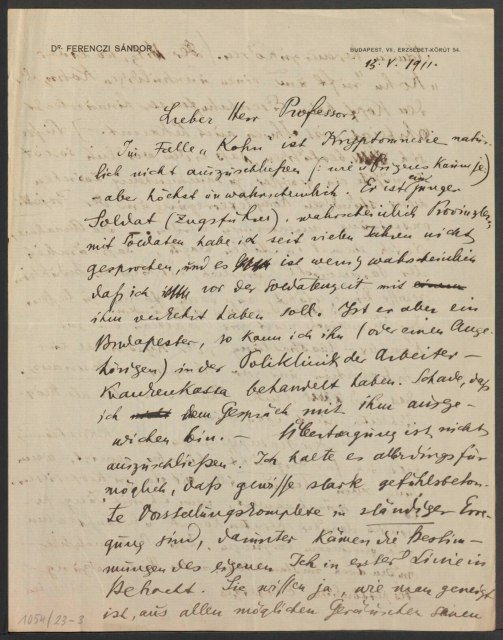 Dr. FERENCZI SÁNDOR
BUDAPEST, VII., ERZSÉBET-KÖRÚT 54.
13. V. 1911.
Lieber Herr Professor,
Im Falle „Kohn" ist Kryptomnesie natür-
lich nicht auszuschließen (: wie übrigens kaum je)
aber höchst unwahrscheinlich. Er ist ein junger
Soldat (Zugsführer), wahrscheinlich Provinzler;
mit Soldaten habe ich seit vielen Jahren nicht
gesprochen, und es ist wenig wahrscheinlich
daß ich vor der Soldatenzeit mit
ihm verkehrt haben soll. Ist er aber ein
Budapester, so kann ich ihn (oder einen Ange-
hörigen) in der Poliklinik der Arbeiter-
Krankenkassa behandelt haben. Schade, daß
ich dem Gespräch mit ihm ausge-
wichen bin. – Übertragung ist nicht
auszuschließen. Ich halte es allerdings für
möglich, daß gewisse stark gefühlsbeton-
te Vorstellungskomplexe in ständiger Erre-
gung sind, darunter kämen die Bestim-
mungen des eigenen Ich in erster Linie in
Betracht. Sie wissen ja, wie man geneigt
ist, aus allen möglichen Geräuschen seinen
1054/23-3